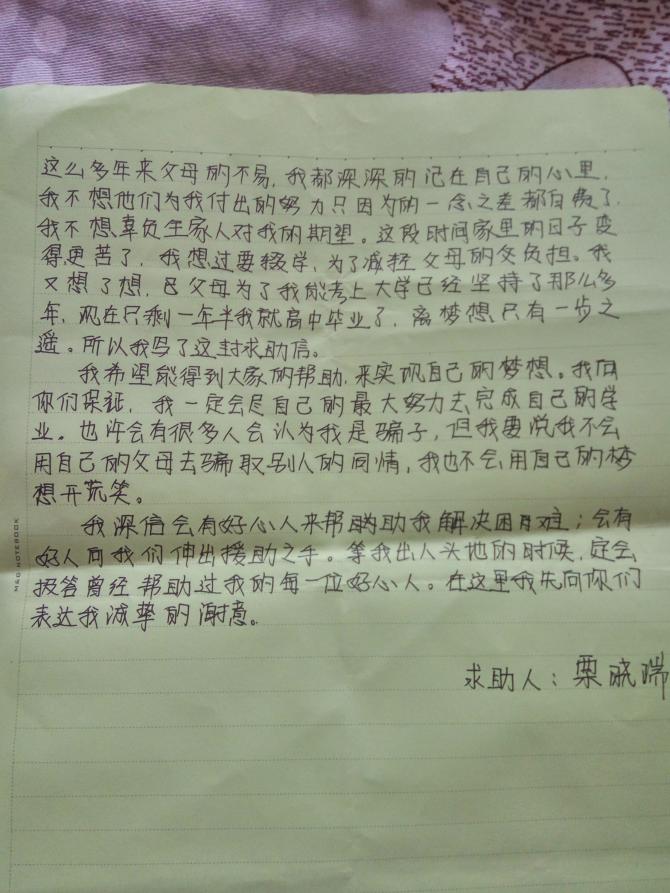 这么多年来父母的不易,我都深深的记在自己的心里,
我不想他们为我付出的努力只因为的一念之差都白费了,
我不想辜负全家人对我的期望。这段时间家里的日子变
得更苦了,我想过要辍学,为了减轻父母的负担。我
又想了想,父母为了我能考上大学已经坚持了那么多
年,现在只剩一年半我就高中毕业了,离梦想只有一步之
遥。所以我写了这封求助信。
我希望能得到大家的帮助,来实现自己的梦想。我向
你们保证,我一定会尽自己的最大努力去完成自己的学
业。也许会有很多人会认为我是骗子,但我要说我不会
用自己的父母去骗取别人的同情,我也不会用自己的梦
想开玩笑。
我深信会有好心人来帮助我解决困难;会有
好人向我们伸出援助之手。等我出人头地的时候,定会
报答曾经帮助过我的每一位好心人。在这里我先向你们
表达我诚挚的谢意。
求助人:栗晓瑞
M&G NOTEBOOK